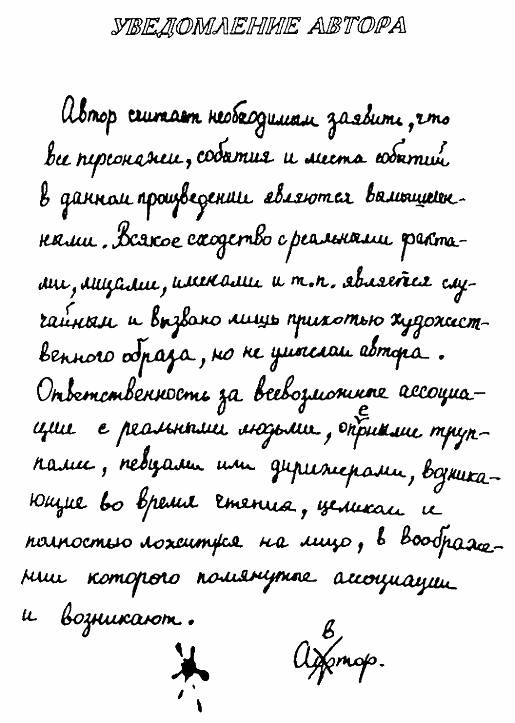 УВЕДОМЛЕНИЕ АВТОРА
Автор считает необходимым заявить, что
все персонажи, события и места событий
в данном произведении являются вымышлен-
ными. Всякое сходство с реальными факта-
ми, лицами, именами и т.п. является слу-
чайным и вызвано лишь прихотью художест-
венного образа, но не умыслом автора.
Ответственность за всевозможные ассоциа-
ции с реальными людьми, оперными труп-
пами, певцами или дирижерами, возника-
ющие во время чтения, целиком и
полностью ложится на лицо, в воображе-
нии которого помянутые ассоциации
и возникают.
Автор.